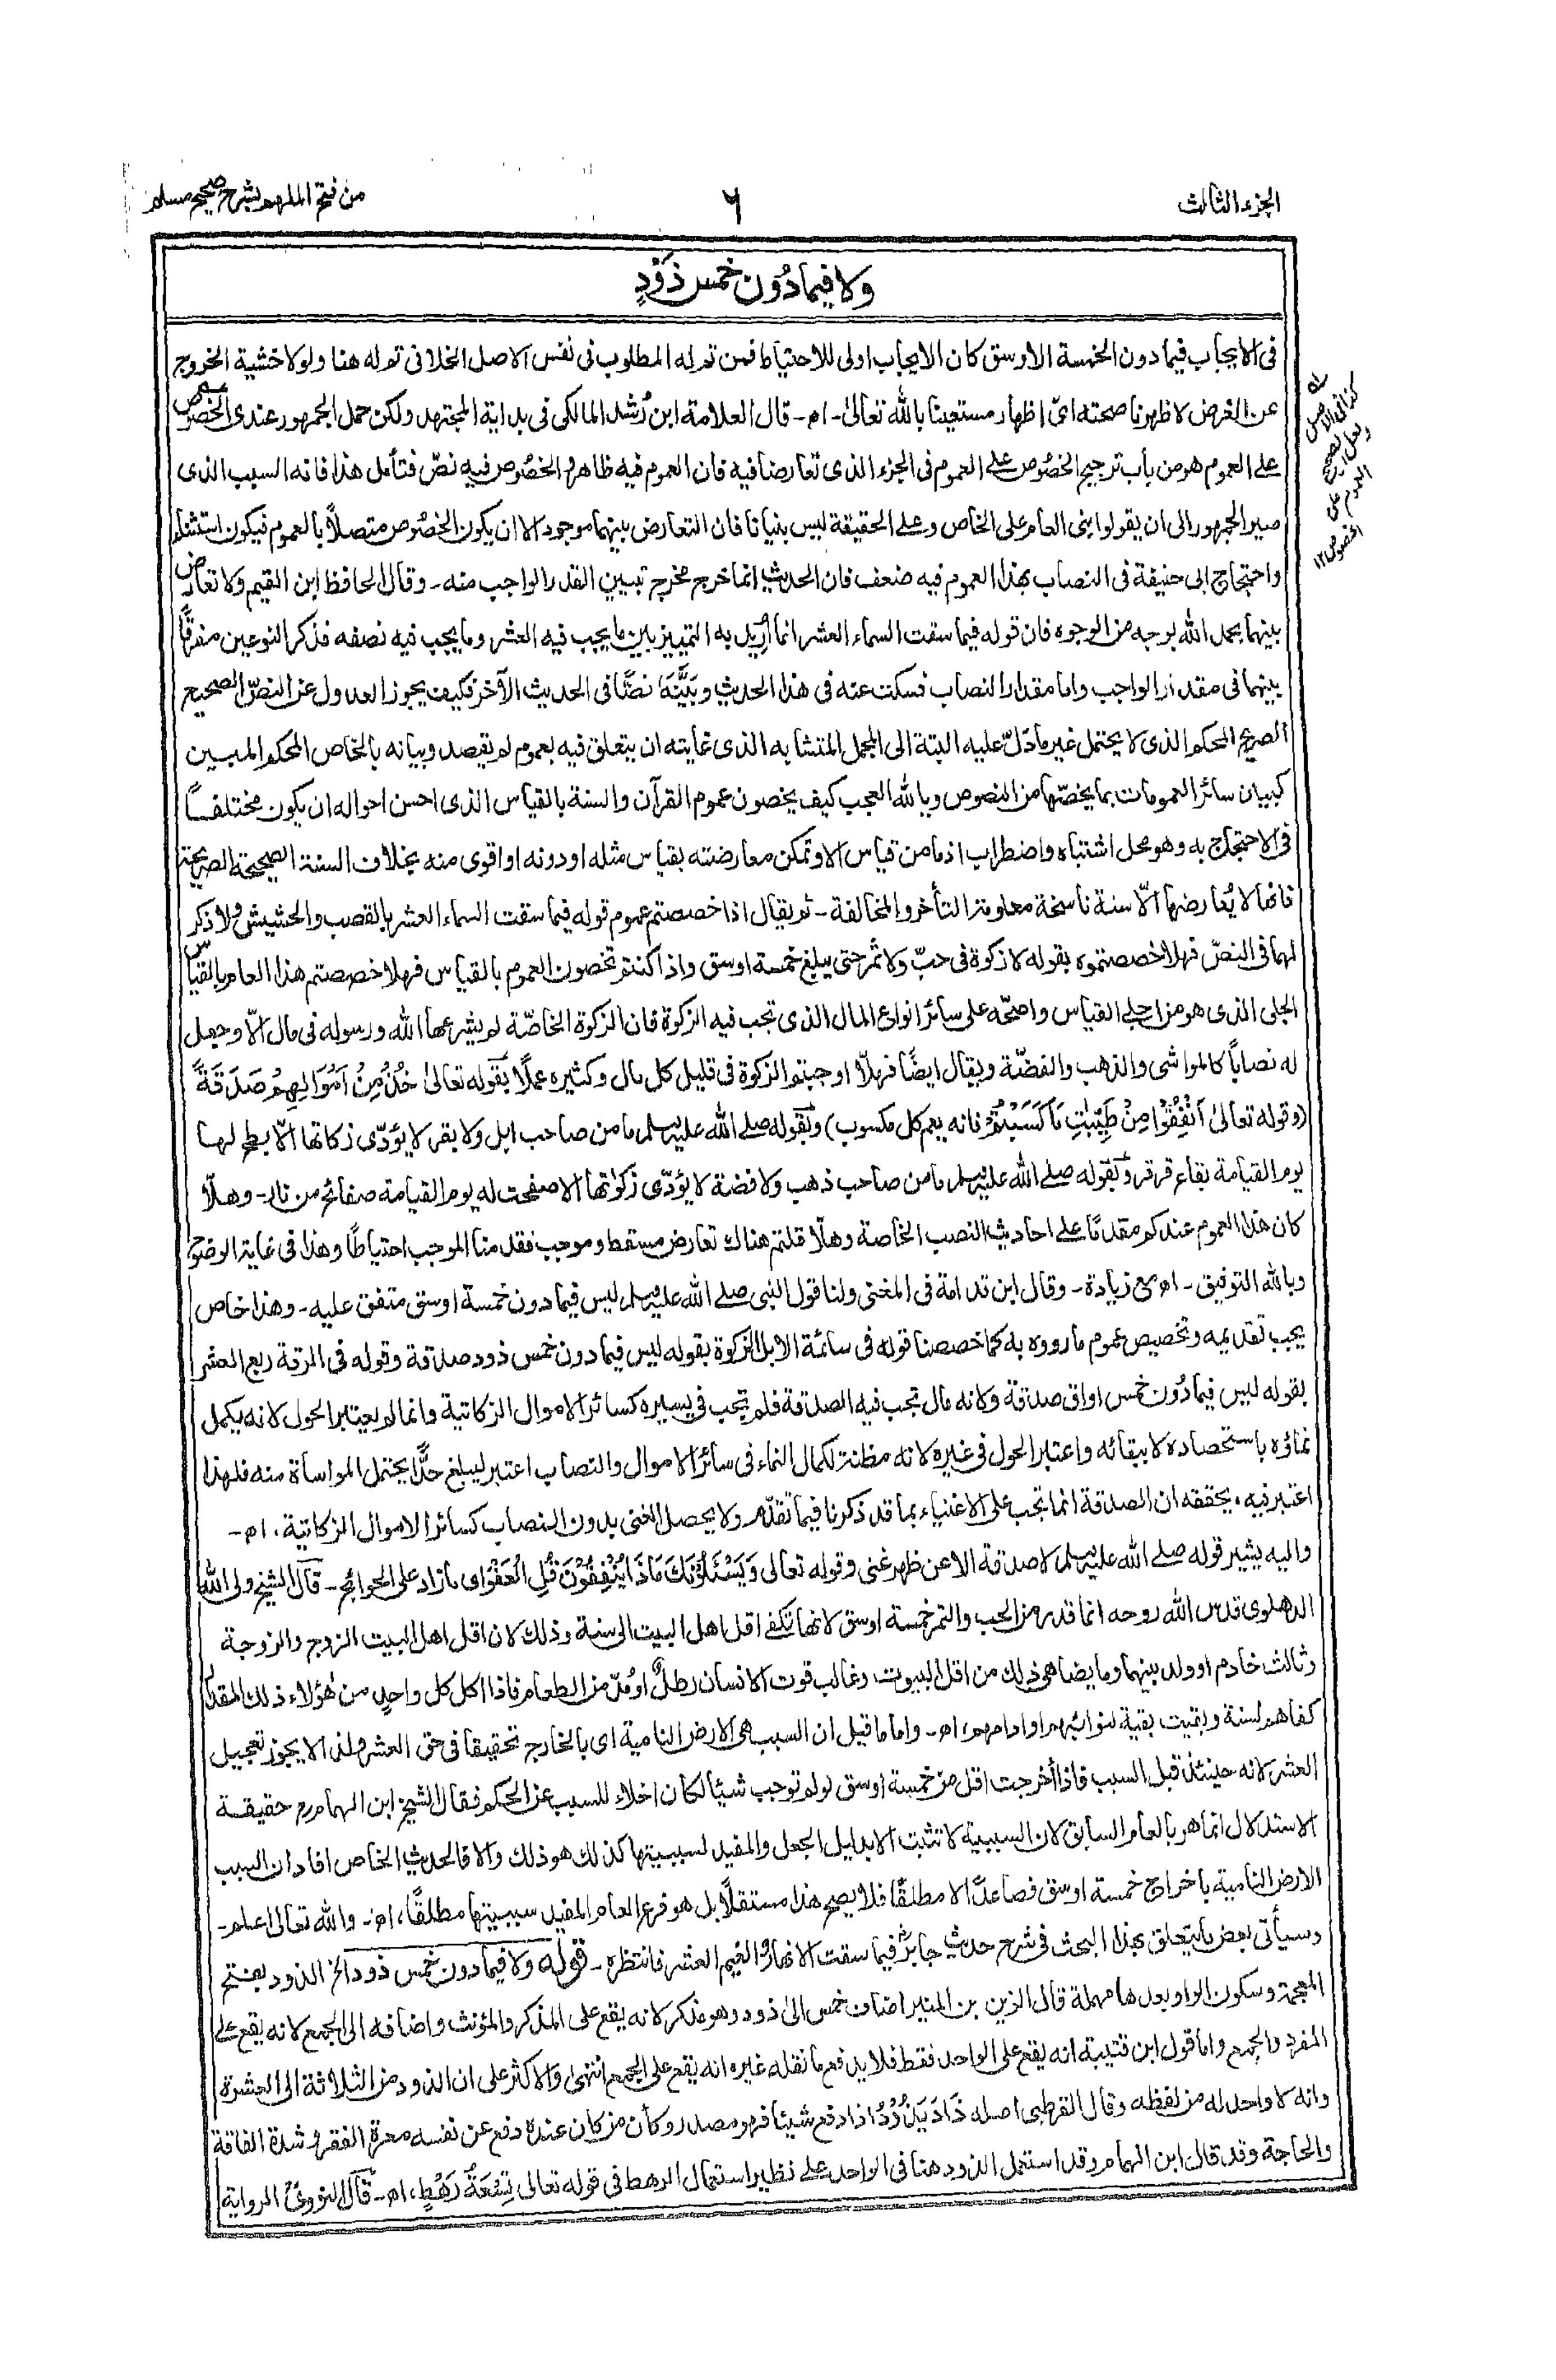 الجزء الثالث
٦
من فتح الملهم بشرح صحيح مسلم
ولا فيما دُون خمس ذَوْدٍ
فى الايجاب فيما دون الخمسة الاوسق كان الايجاب اولى للاحتياط فمن تم له المطلوب فى نفس الاصل الخلافى تم له هنا ولولا خشية الخروج
عن الغرض لاظهرنا صحته اىّ اظهار مستعينًا بالله تعالىٰ - اه - قال العلامة ابن رُشد المالكى فى بداية المجتهد ولكن حمل الجمهور عندى الخصُوص
على العموم هو من باب ترجيح الخصُوص على العموم فى الجزء الذى تعارضا فيه فان العموم فيه ظاهر والخصُوص فيه نصّ فتأمل هذا فانه السبب الذى
صير الجمهور الى ان يقولوا بنى العام على الخاص وعلى الحقيقة ليس بنيانا فان التعارض بينهما موجود الا ان يكون الخصُوص متصلاً بالعموم فيكون استثناء
واحتجاج ابى حنيفة فى النصاب بهذا العموم فيه ضعف فان الحديث انما خرج مخرج تبيين القدر الواجب منه - وقال الحافظ ابن القيم ولا تعارض
بينهما بحمد الله بوجه من الوجوه فان قوله فيما سقت السماء العشر انما اُريد به التمييز بين ما يجب فيه العشر وما يجب فيه نصفه فذكر النوعين مفرقًا
بينهما فى مقدار الواجب واما مقدار النصاب فسكت عنه فى هذا الحديث وبَيَّنَهٗ نصًّا فى الحديث الآخر فكيف يجوز العدول عن النصّ الصحيح
الصريح المحكم الذى لا يحتمل غير ما دلّ عليه البتة الى المجمل المتشابه الذى غايته ان يتعلق فيه بعموم لم يقصد وبيانه بالخاص المحكم المبين
كبيان سائر العمومات بما يخصّها من النصوص ويا لله العجب كيف يخصون عموم القرآن والسنة بالقياس الذى احسن احواله ان يكون مختلفًا
فى الاحتجاج به وهو محل اشتباه واضطراب اذ ما من قياس الا وتمكن معارضته بقياس مثله او دونه او اقوى منه بخلاف السنة الصحيحة الصريحة
فانها لا يُعارضها الّا سنة ناسخة معلومة التأخر والمخالفة - ثم يقال اذا خصصتم عموم قوله فيما سقت السماء العشر بالقصب والحشيش ولا ذكر
لهما فى النصّ فهلا خصصتموه بقوله لا زكوة فى حبّ ولا ثمر حتى يبلغ خمسة اوسق واذا كنتم تخصون العموم بالقياس فهلا خصصتم هذا العام بالقياس
الجلى الذى هو من اجلى القياس واصحّه على سائر انواع المال الذى تجب فيه الزكوة فان الزكوة الخاصّة لم يشرعها الله ورسوله فى مال الّا وجعل
له نصاباً كالمواشى والذهب والفضّة ويقال ايضًا فهلّا اوجبتم الزكوة فى قليل كل مال وكثيره عملًا بقوله تعالىٰ خُذْ مِنْ اَمْوَالِهِمْ صَدَقَةً
(وقوله تعالىٰ اَنْفِقُوْا مِنْ طَيِّبٰتِ مَا كَسَبْتُمْ فانه يعم كل مكسوب) وبقوله صلى الله عليه وسلم ما من صاحب ابل ولا بقر لا يؤدّى زكاتها الّا بطح لها
يوم القيامة بقاع قرقر وبقوله صلى الله عليه وسلم ما من صاحب ذهب ولا فضة لا يؤدّى زكوٰتها الا صفحت له يوم القيامة صفائح من نار - وهلّا
كان هذا العموم عندكم مقدمًا على احاديث النصب الخاصة وهلّا قلتم هناك تعارض مسقط وموجب فقدمنا الموجب احتياطًا وهذا فى غاية الوضوح
وبالله التوفيق - اه مع زيادة - وقال ابن قدامة فى المغنى ولنا قول النبى صلى الله عليه وسلم ليس فيما دون خمسة اوسق متفق عليه - وهذا خاص
يجب تقديمه وتخصيص عموم ما رووه به كما خصصنا قوله فى سائمة الابل الزكوة بقوله ليس فيما دون خمس ذود صدقة وقوله فى الرقة ربع العشر
بقوله ليس فيما دُون خمس اواق صدقة ولانه مال تجب فيه الصدقة فلم تجب فى يسيره كسائر الاموال الزكاتية وانما لم يعتبر الحول لانه يكمل
نماؤه باستحصاده لا ببقائه واعتبر الحول فى غيره لانه مظنة لكمال النماء فى سائر الاموال والنصاب اعتبر ليبلغ حدًّا يحتمل المواساة منه فلهذا
اعتبر فيه، يحققه ان الصدقة انما تجب على الاغنياء بما قد ذكرنا فيما تقدّم ولا يحصل الغنى بدون النصاب كسائر الاموال الزكاتية، اه -
واليه يشير قوله صلى الله عليه وسلم لا صدقة الا عن ظهر غنى وقوله تعالى وَيَسْئَلُوْنَكَ مَاذَا يُنْفِقُوْنَ قُلِ الْعَفْوَ اى ما زاد على الحوائج - قال الشيخ ولى الله
الدهلوى قدس الله روحه انما قدر من الحب والتمر خمسة اوسق لانها تكفى اقل اهل البيت الى سنة وذلك لان اقل اهل البيت الزوج والزوجة
وثالث خادم او ولد بينهما وما يضاهى ذلك من اقل البيوت، وغالب قوت الانسان رطلٌ او مُدّ من الطعام فاذا اكل كل واحدٍ من هٰؤلاء ذلك المقدار
كفاهم لسنة وبقيت بقية لنوائبهم او ادامهم، اه - واما ما قيل ان السبب هى الارض النامية اى بالخارج تحقيقاً فى حق العشر ولذا لا يجوز تعجيل
العشر لانه حينئذ قبل السبب فاذا أخرجت اقل من خمسة اوسق لو لم توجب شيئا لكان اخلاء للسبب عن الحكم فقال الشيخ ابن الهمام رح حقيقة
الاستدلال انما هو بالعام السابق لان السببية لا تثبت الا بدليل الجعل والمفيد لسببيتها كذلك هو ذلك والا فالحديث الخاص افاد ان السبب
الارض النامية باخراج خمسة اوسق فصاعدًا لا مطلقًا فلا يصح هذا مستقلًا بل هو فرع العام المفيد سببيتها مطلقًا، اه - والله تعالى اعلم -
وسيأتى بعض ما يتعلق بهذا البحث فى شرح حديث جابر رض فيما سقت الانهار والغيم العشر فانتظره - قوله ولا فيما دون خمس ذود الخ الذود بفتح
المعجمة وسكون الواو بعدها مهملة قال الزين بن المنير اضاف خمس الىٰ ذود وهو مذكر لانه يقع على المذكر والمؤنث واضافه الى الجمع لانه يقع على
المفرد والجمع واما قول ابن قتيبة انه يقع على الواحد فقط فلا يدفع ما نقله غيره انه يقع على الجمع انتهى والاكثر على ان الذود من الثلاثة الى العشرة
وانه لا واحد له من لفظه وقال القرطبى اصله ذَادَ يَذُوْدُ اذا دفع شيئا فهو مصدر وكأن من كان عنده دفع عن نفسه معرة الفقر وشدة الفاقة
والحاجة وقد قال ابن الهمام وقد استعمل الذود هنا فى الواحد على نظير استعمال الرهط فى قوله تعالى تِسْعَةُ رَهْطٍ، اه - قال النووىّ الرواية
كذا فى الاصل
ولعل الصحيح
العموم على
الخصوص ١٢